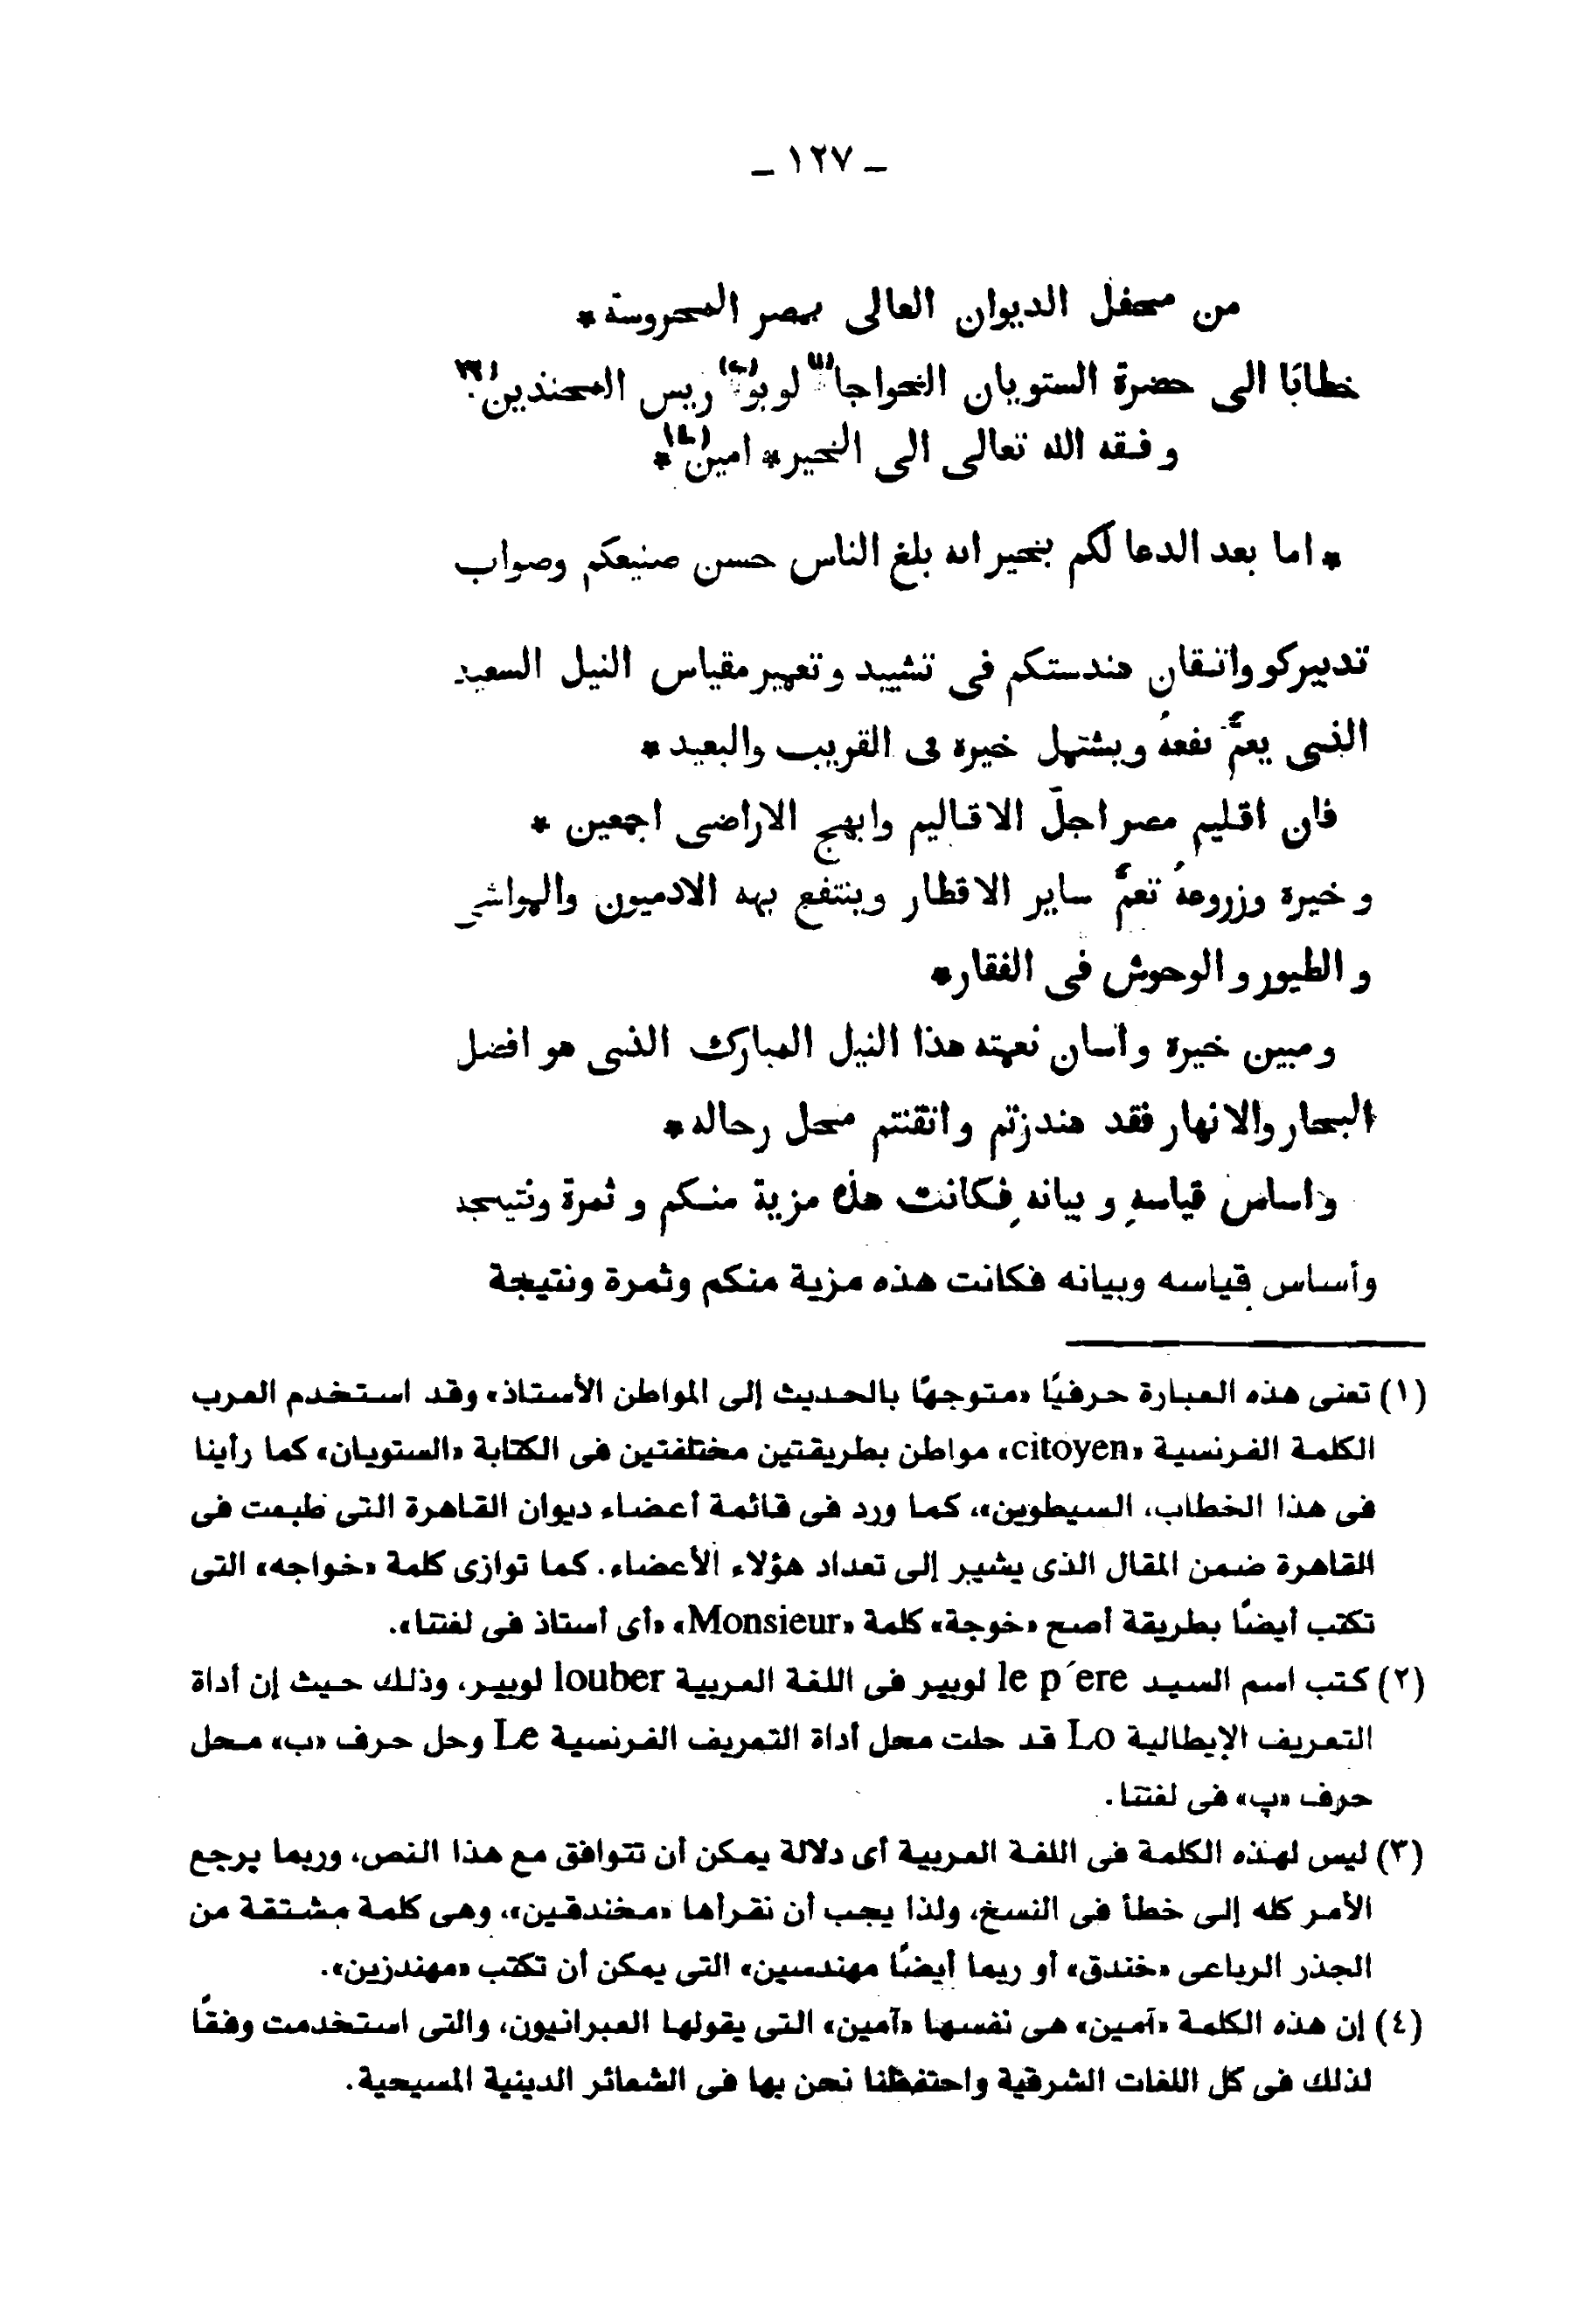 ـ ١٢٧ ـ
من محفل الديوان العالى بمصر المحروسة *
خطابًا الى حضرة الستويان الخواجا (١) لوبو (٢) ريس المحندين (٣)
وفقه الله تعالى الى الخير * امين (٤) *
* اما بعد الدعا لكم بخير انه بلغ الناس حسن صنيعكم وصواب
تدبيركو واتقان هندستكم فى تشييد وتعمير مقياس النيل السعيد
الذى يعمّ نفعهُ ويشتمل خيره فى القريب والبعيد *
فان اقليم مصر اجلّ الاقاليم وابهج الاراضى اجمعين *
وخيرة وزروعهُ تعمّ ساير الاقطار وينتفع بهه الادميون والمواشى
والطيور والوحوش فى الفقار *
ومبين خيرة واسان نعمته هذا النيل المبارك الذى هو افضل
البحار والانهار فقد هندزتم واتقنتم محل رحاله *
واساس قياسه وبيانه فكانت هذه مزية منكم وثمرة ونتيجه
وأساس قياسه وبيانه فكانت هذه مزية منكم وثمرة ونتيجة
(١) تعنى هذه العبارة حرفيًا «متوجهًا بالحديث إلى المواطن الأستاذ» وقد استخدم العرب
الكلمة الفرنسية «citoyen» مواطن بطريقتين مختلفتين فى الكتابة «الستويان» كما رأينا
فى هذا الخطاب، السيطوين»، كما ورد فى قائمة أعضاء ديوان القاهرة التى طبعت فى
القاهرة ضمن المقال الذى يشير إلى تعداد هؤلاء الأعضاء. كما توازى كلمة «خواجه» التى
تكتب أيضًا بطريقة أصح «خوجة» كلمة «Monsieur» «أى أستاذ فى لغتنا».
(٢) كتب اسم السيد le p´ere لوبير فى اللغة العربية louber لوبير، وذلك حيث إن أداة
التعريف الإيطالية Lo قد حلت محل أداة التعريف الفرنسية Le وحل حرف «ب» محل
حرف «پ» فى لغتنا.
(٣) ليس لهذه الكلمة فى اللغة العربية أى دلالة يمكن أن تتوافق مع هذا النص، وربما يرجع
الأمر كله إلى خطأ فى النسخ، ولذا يجب أن نقرأها «مخندقين»، وهى كلمة مشتقة من
الجذر الرباعى «خندق» أو ربما أيضًا مهندسين» التى يمكن أن تكتب «مهندزين».
(٤) إن هذه الكلمة «آمين» هى نفسها «آمين» التى يقولها العبرانيون، والتى استخدمت وفقًا
لذلك فى كل اللغات الشرقية واحتفظنا نحن بها فى الشعائر الدينية المسيحية.